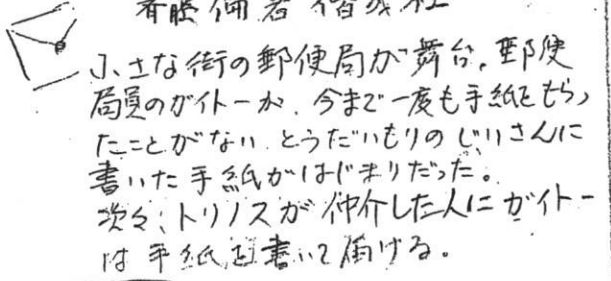 斉藤倫著 偕成社
小さな街の郵便局が舞台。郵便
局員のガイトーが、今まで一度も手紙をもらっ
たことがない とうだいもりのじいさんに
書いた手紙がはじまりだった。
次々、トリノスが仲介した人にガイトー
は手紙を書いて届ける。